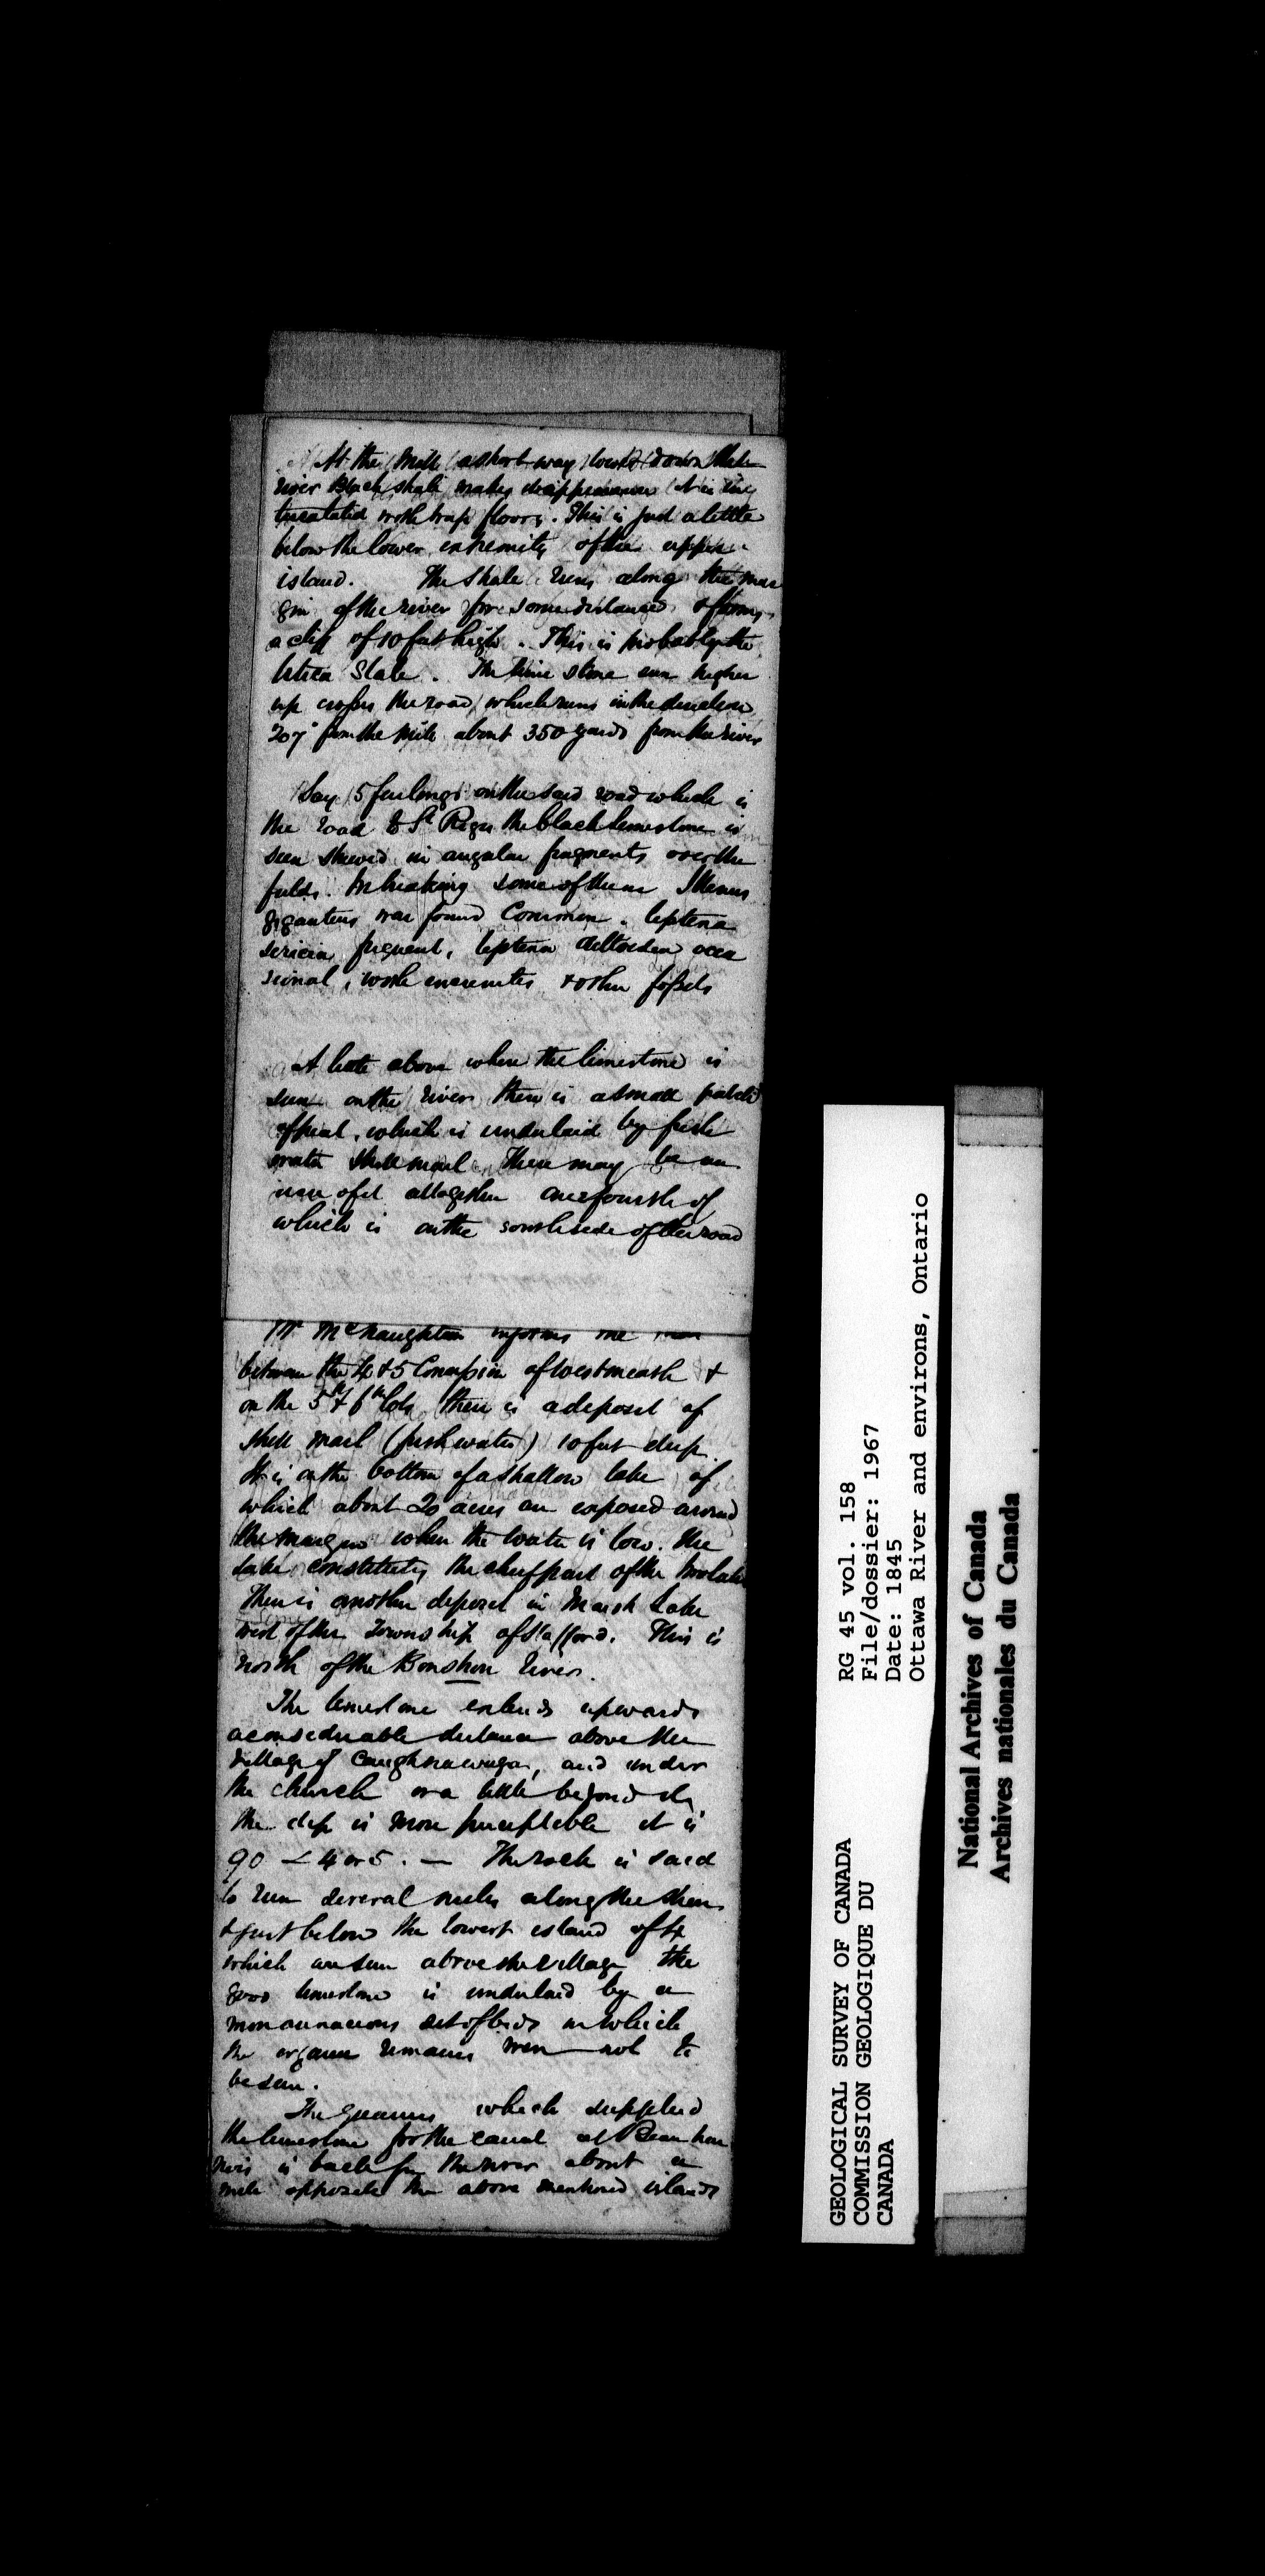 At the Mill a short way lower down the
river Black shale makes its appearance It is
with trap floors. This is just a little
below the lower extremity of the upper
island. The shale runs along the mar
gin of the river for some distance & forms
a clif of 10 feet high. This is probably the
Utica Slate. The lime stone seen higher
up crosses the road which runs in the direction
207° from the Mill about 350 yards from the river
Say 5 furlongs on the said road which is
the road to St Regis the black limestone is
seen strewed in angular fragments over the
fields. In breaking some of them Illenus
giganteus was found Common. leptena
sericea frequent, leptena deltoidea occa
sional, with encrinites & other fossils
A little above where the limestone is
seen on the river there is a small patch
of peat, which is underlaid by fresh
water shell marl. There may be an
acre of it altogether one fourth of
which is on the south side of the road
Mr McNaughton informs me that
between the 4 & 5 Concession of Westmeath &
on the 5th & 6th lots there is a deposit of
shell marl (fresh water) 10 feet deep.
It is on the bottom of a shallow lake of
which about 20 acres are exposed around
the margin when the water is low. The
lake constitutes the chief part of the two lots
There is another deposit in Marsh Lake
west of the Township of Stafford. This is
north of the Bonshon River.
The limestone extends upwards
a considerable distance above the
village of Caughnawaga, and under
the church or a little beyond it
the dip is more perceptible it is
90 ∠ 4 or 5. — The rock is said
to run several miles along the shore
& just below the lowest island of 4
which are seen above the village the
good limestone is underlaid by a
more arenaceous set of beds in which
the organic remains were not to
be seen.
The quarry which supplied
the limestone for the canal at Beauhar
nois is back fm the river about a
mile opposite the above mentioned islands
GEOLOGICAL SURVEY OF CANADA
COMMISSION GEOLOGIQUE DU
CANADA
RG 45 vol. 158
File/dossier: 1967
Date: 1845
Ottawa River and environs, Ontario
National Archives of Canada
Archives nationales du Canada